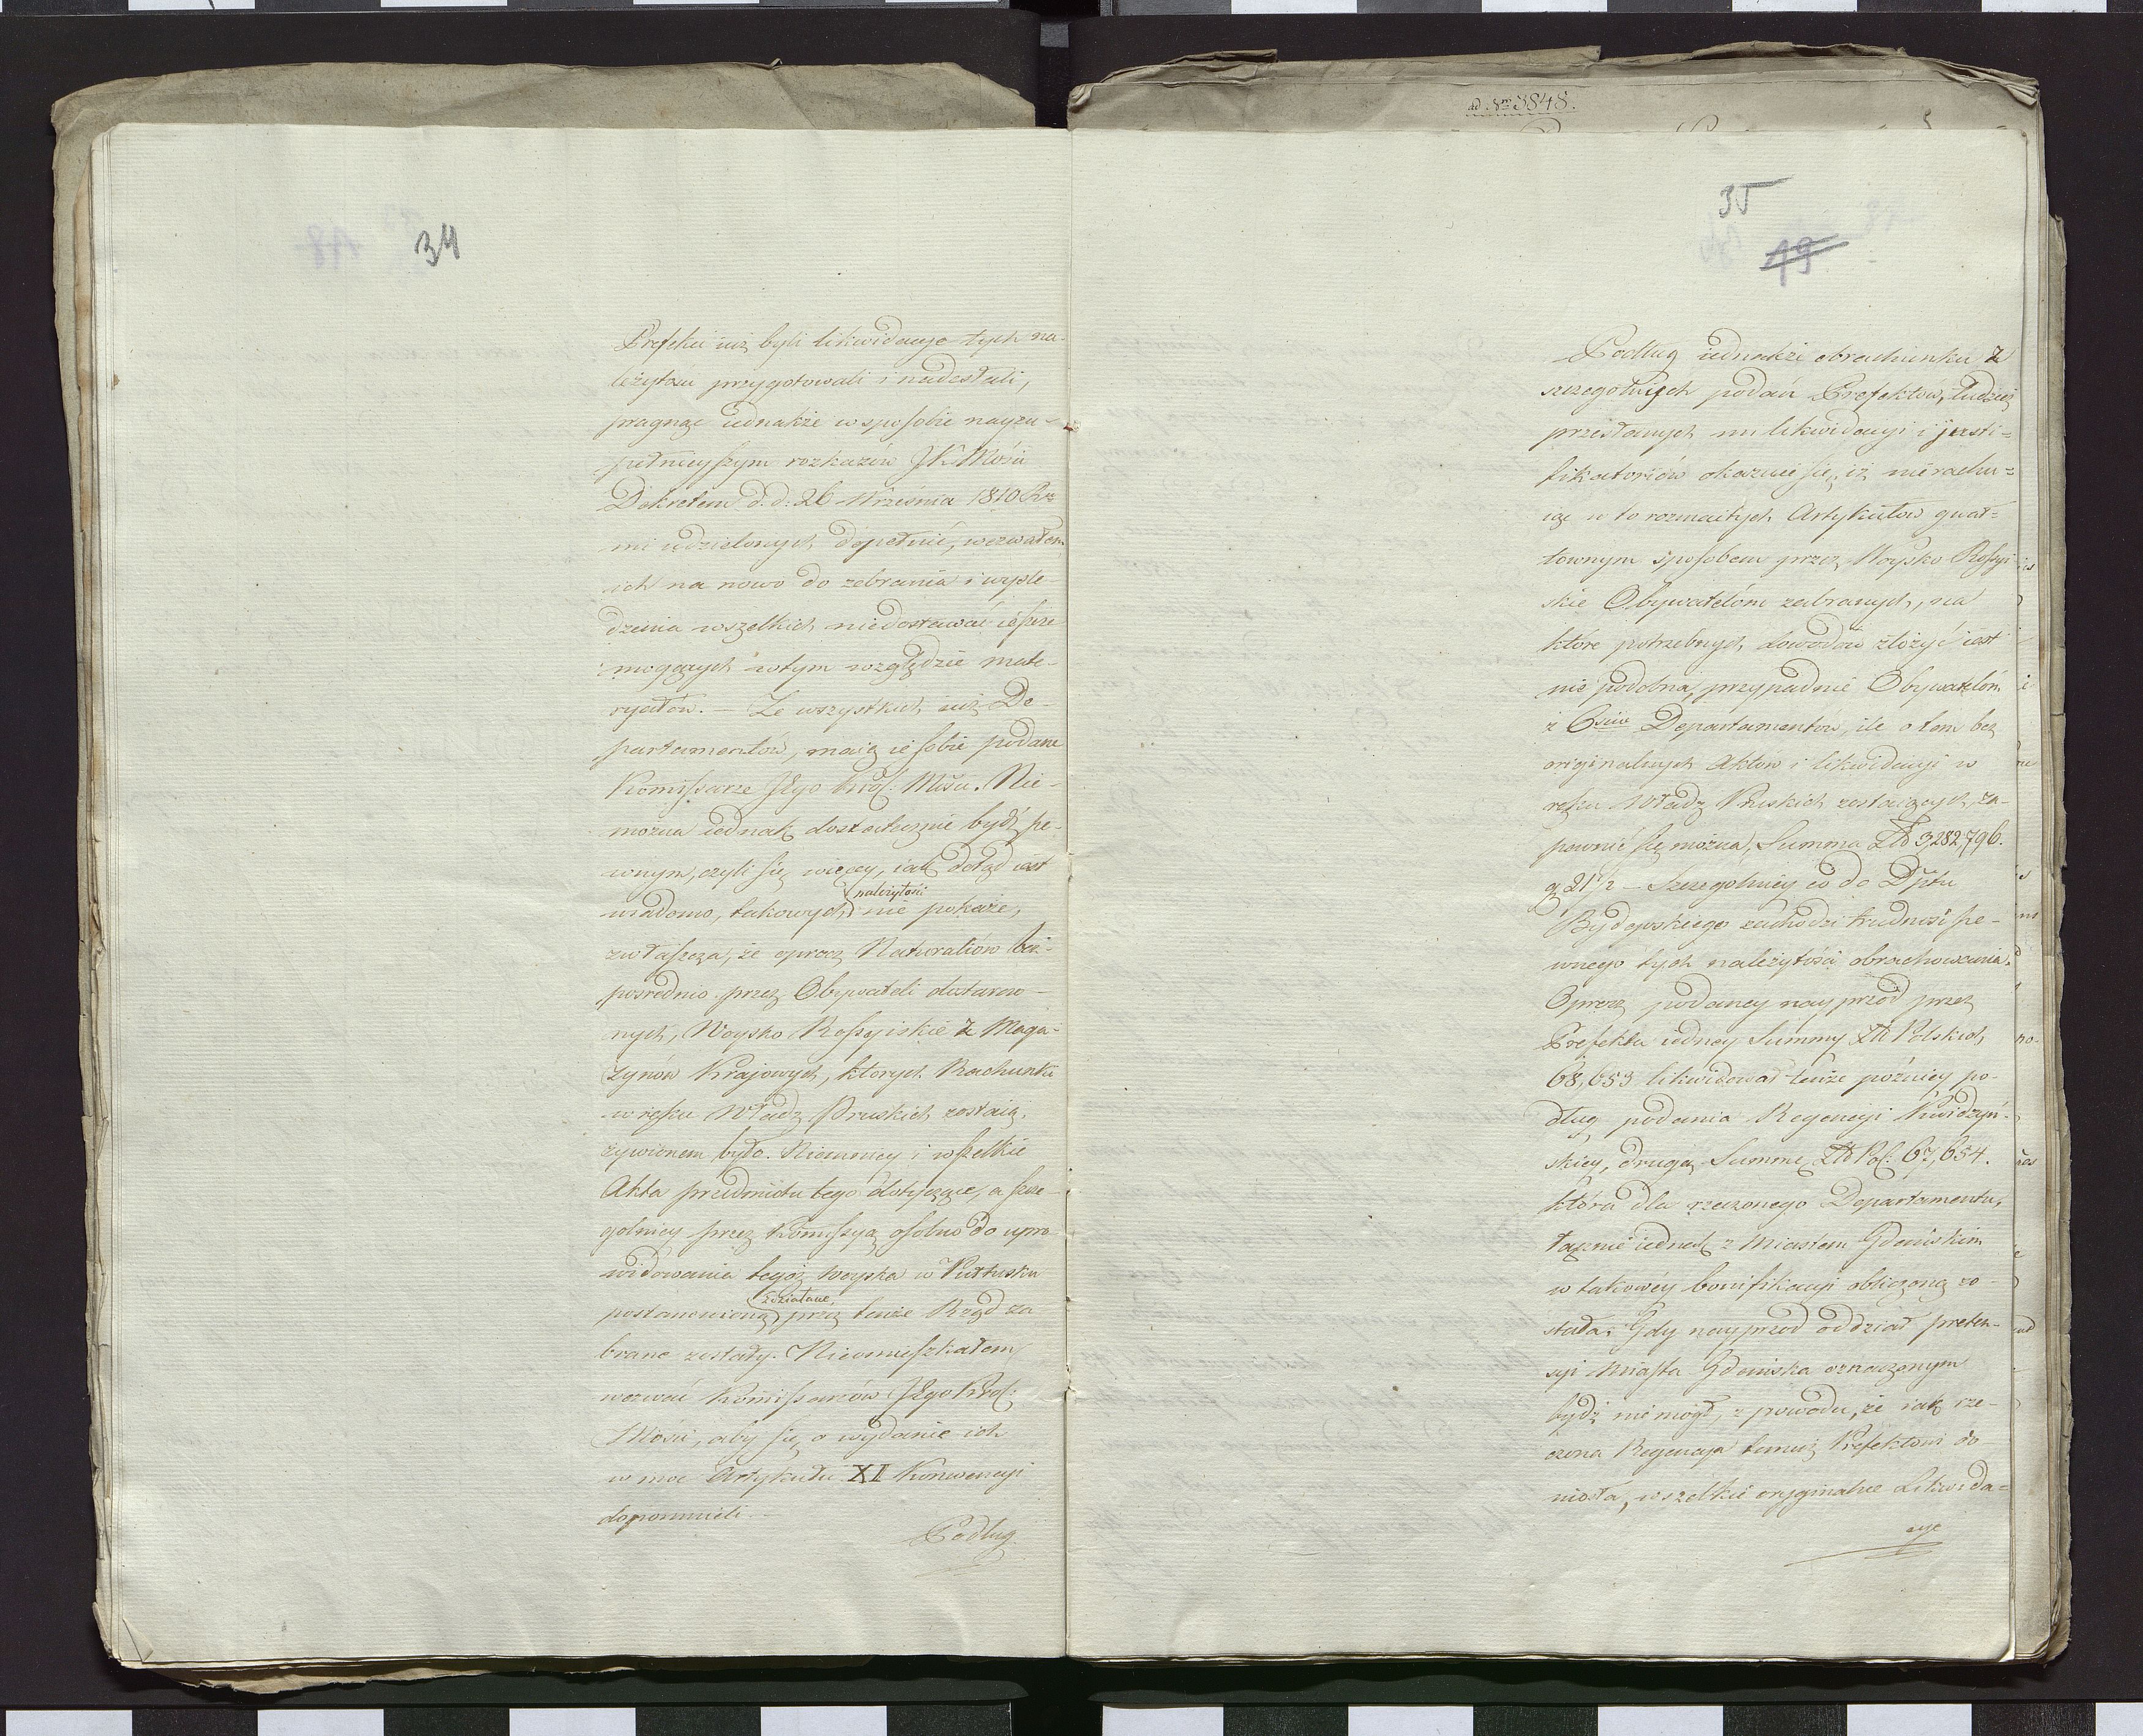 ad. Nro 3848.
34
Prefekci iuż byli likwidacye tych na-
leżytosci przygotowali i nadesłali,
pragnąc iednakże w sposobie nayzu-
pełnieyszym rozkazów JKMości
Dekretem d. d: 26 Września 1810 Rr
mi udzielonych dopełnić, wezwałem
ich na nowo do zebrania i wyśle-
dzenia wszelkich niedostawać ieszcze
mogących w tym względzie mate-
ryałów. — Ze wszystkich iuż De-
partamentów, maią ie sobie podane
Kommissarze JEgo Krol: Mści. Nie-
można iednak dostatecznie bydź pe-
wnym, czyli się więcey, iak dotąd iest
wiadomo, takowych należytości nie pokaże,
zwłaszcza, że oprocz Naturaliów bez-
posrednio przez Obywateli dostarczo-
nych, Woysko Rossyiskie z Maga-
zynów Krajowych, ktorych Rachunki
w ręku Władz Pruskich zostaią,
żywionem było. Niemniey i wszelkie
Akta przedmiotu tego dotyczące, a szcze-
golniey przez Kommissyą osobno do upro-
widowania tegoż woyska w Pułtusku
postanowioną zdziałane, przez tenże Rząd za-
brane zostały. Nieomieszkałem
wezwać Kommissarzów JEgo Krol:
Mości, aby się o wydanie ich
w moc Artykułu XI Konwencyi
dopomnieli.
Podług
35
19
Podług iednakże obrachunku z
szczegolnych podań Prefektow, tudzież
przesłanych mi likwidacyi i justi-
fikatoriów okazuie się, iż nierachu-
iąc w to rozmaitych Artykułow gwał-
townym sposobem przez Woysko Rossyi-
skie Obywatelóm zabranych, na
które potrzebnych dowodów złożyć iest
nie podobna, przypadnie Obywatelóm
z 6ciu Departamentów, ile o tem bez
originalnych Aktów i likwidacyi w
ręku Władz Pruskich zostaiących, za-
pewnić się można, Summa Zł 3,282,796.
g. 21 1/2 — Szczegolniey co do Dptu
Bydgoskiego zachodzi trudność pe-
wnego tych należytości obrachowania.
Oprocz podaney nayprzod przez
Prefekta iedney Summy Zł Polskich
68,653 likwidował tenże późniey po-
dług podania Regencyi Kwidzyń-
skiey, drugą Summę Zł Pol: 67,654.
która dla rzeczonego Departamentu,
łącznie iednak z Miastem Gdańskiem
w takowey bonifikacyi obliczoną zo-
stała. Gdy nayprzod oddział preten-
syi Miasta Gdańska oznaczonym
bydź nie mógł, z powodu, że iak rze-
czona Regencya temuż Prefektowi do-
niosła, wszelkie oryginalne Likwida-
cye